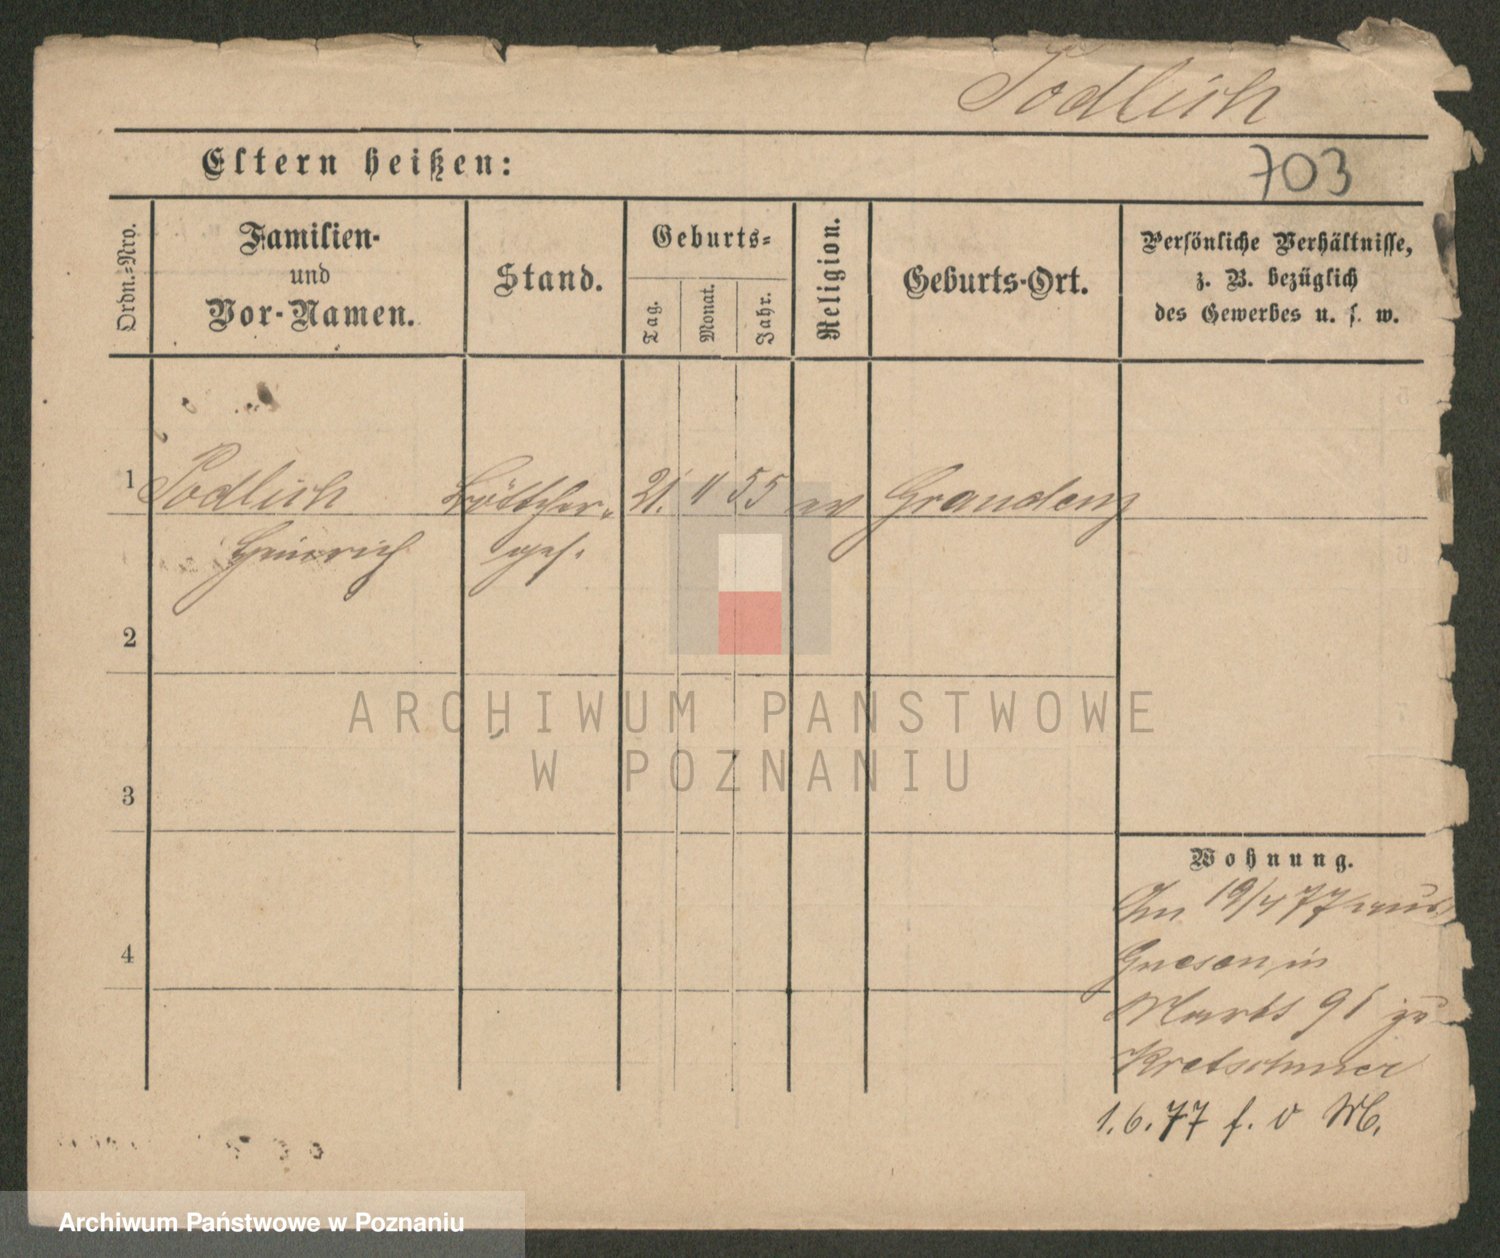 Podlich
703
Eltern heißen:
Ordn.-Nro.
Familien-
und
Vor-Namen.
Stand.
Geburts-
Tag.
Monat.
Jahr.
Religion.
Geburts-Ort.
Persönliche Verhältnisse,
z. B. bezüglich
des Gewerbes u. s. w.
1 Podlich Böttcher- 21. 11 55 ev Graudenz
Heinrich ges.
2
3
4
Wohnung.
Am 19/4 77 aus
Gnesen in
Markt 91 zu
Kretschmer
1.6.77 f. v M.
ARCHIWUM PAŃSTWOWE
W POZNANIU
Archiwum Państwowe w Poznaniu